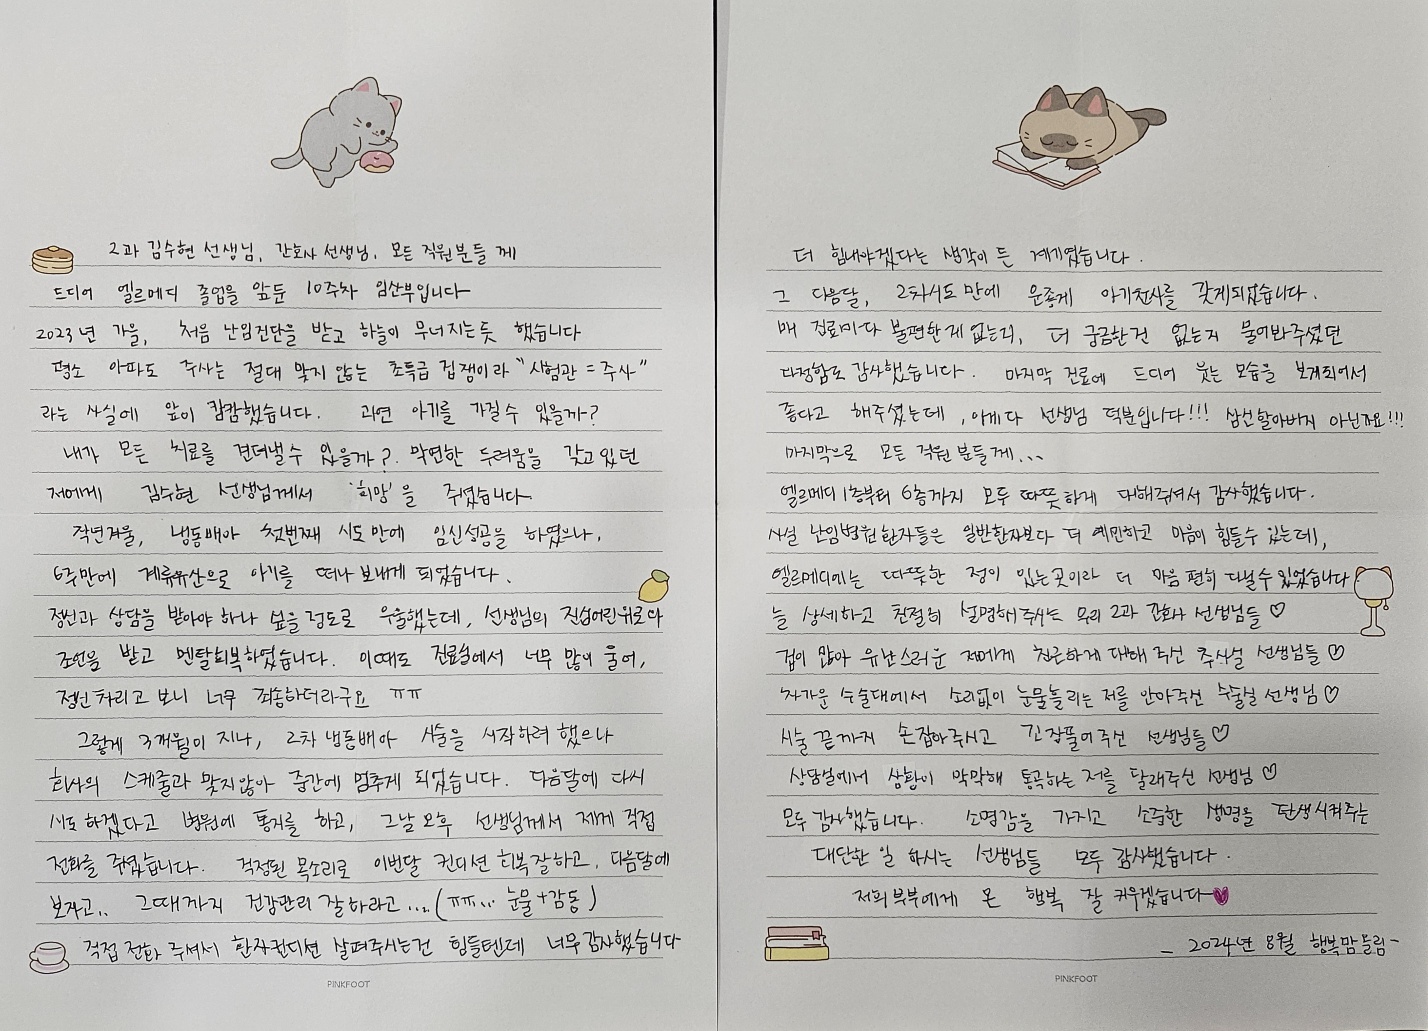 2과 김수현 선생님, 간호사 선생님, 모든 직원분들 께
드디어 엘르메디 졸업을 앞둔 10주차 임산부입니다
2023년 가을, 처음 난임진단을 받고 하늘이 무너지는듯 했습니다
평소 아파도 주사는 절대 맞지 않는 초특급 겁쟁이라 "시험관 = 주사"
라는 사실에 앞이 캄캄했습니다. 과연 아기를 가질 수 있을까?
내가 모든 치료를 견뎌낼 수 있을까? 막연한 두려움을 갖고 있던
저에게 김수현 선생님께서 '희망'을 주셨습니다
작년겨울, 냉동배아 첫번째 시도만에 임신성공을 하였으나,
6주만에 계류유산으로 아기를 떠나보내게 되었습니다.
정신과 상담을 받아야 하나 싶을정도로 우울했는데, 선생님의 진심어린위로와
조언을 받고 멘탈회복하였습니다. 이때도 진료실에서 너무 많이 울어,
정신차리고 보니 너무 죄송하더라구요 ㅠㅠ
그렇게 3개월이 지나, 2차 냉동배아 시술을 시작하려 했으나
회사의 스케줄과 맞지않아 중간에 멈추게 되었습니다. 다음달에 다시
시도하겠다고 병원에 통지를 하고, 그날 오후 선생님께서 제게 직접
전화를 주셨습니다. 걱정된 목소리로 이번달 컨디션 회복잘하고, 다음달에
보자고.. 그때까지 건강관리 잘하라고....(ㅠㅠ... 눈물+감동)
직접 전화 주셔서 환자컨디션 살펴주시는건 힘들텐데 너무감사했습니다
PINKFOOT
더 힘내야겠다는 생각이 든 계기였습니다.
그 다음달, 2차시도만에 운좋게 아기천사를 갖게되었습니다.
매 진료마다 불편한게 없는지, 더 궁금한건 없는지 물어봐주셨던
다정함도 감사했습니다. 마지막 진료에 드디어 웃는 모습을 보게되어서
좋다고 해주셨는데, 이게 다 선생님 덕분입니다!!! 삼신할아버지 아닌가요!!!
마지막으로 모든 직원분들께...
엘르메디 1층부터 6층까지 모두 따뜻하게 대해주셔서 감사했습니다.
사실 난임병원 환자들은 일반환자보다 더 예민하고 마음이 힘들수 있는데,
엘르메디에는 따뜻한 정이 있는곳이라 더 마음 편히 다닐수 있었습니다
늘 상세하고 친절히 설명해주시는 우리 2과 간호사 선생님들 ♡
겁이 많아 유난스러운 저에게 친근하게 대해 주신 주사실 선생님들 ♡
차가운 수술대에서 소리없이 눈물흘리는 저를 안아주신 수술실 선생님 ♡
시술 끝까지 손잡아주시고 긴장풀어주신 선생님들 ♡
상담실에서 상황이 막막해 통곡하는 저를 달래주신 선생님 ♡
모두 감사했습니다. 소명감을 가지고 소중한 생명을 탄생시켜주는
대단한 일 하시는 선생님들 모두 감사했습니다.
저희 부부에게 온 행복 잘 키우겠습니다♥
- 2024년 8월 행복맘 드림 -
PINKFOOT